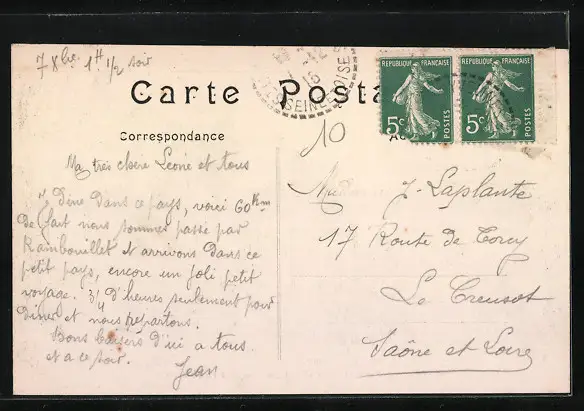 7 Xbre 1H 1/2 soir
Carte Posta
Correspondance
REPUBLIQUE FRANÇAISE
5c
POSTES
REPUBLIQUE FRANÇAISE
5c
POSTES
SEINE
OISE
15
10
Ma très chère Léonie et tous
Dîne dans ce pays, voici 60 Km
de fait nous sommes passé par
Rambouillet et arrivons dans ce
petit pays, encore un joli petit
voyage. 3/4 d'heures seulement pour
dîner et nous repartons.
Bons baisers d'ici a tous
et a ce soir.
Jean
J. Laplante
17 Route de Torcy
Le Creusot
Saône et Loire